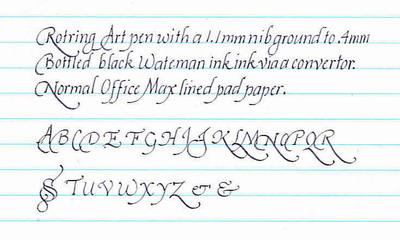 Rotring Art pen with a 1.1mm nib ground to .4mm
Bottled black Wateman ink ink via a convertor.
Normal Office Max lined pad paper.
ABCDEFGHIJKLMNOPQR
S TUVWXYZ & &